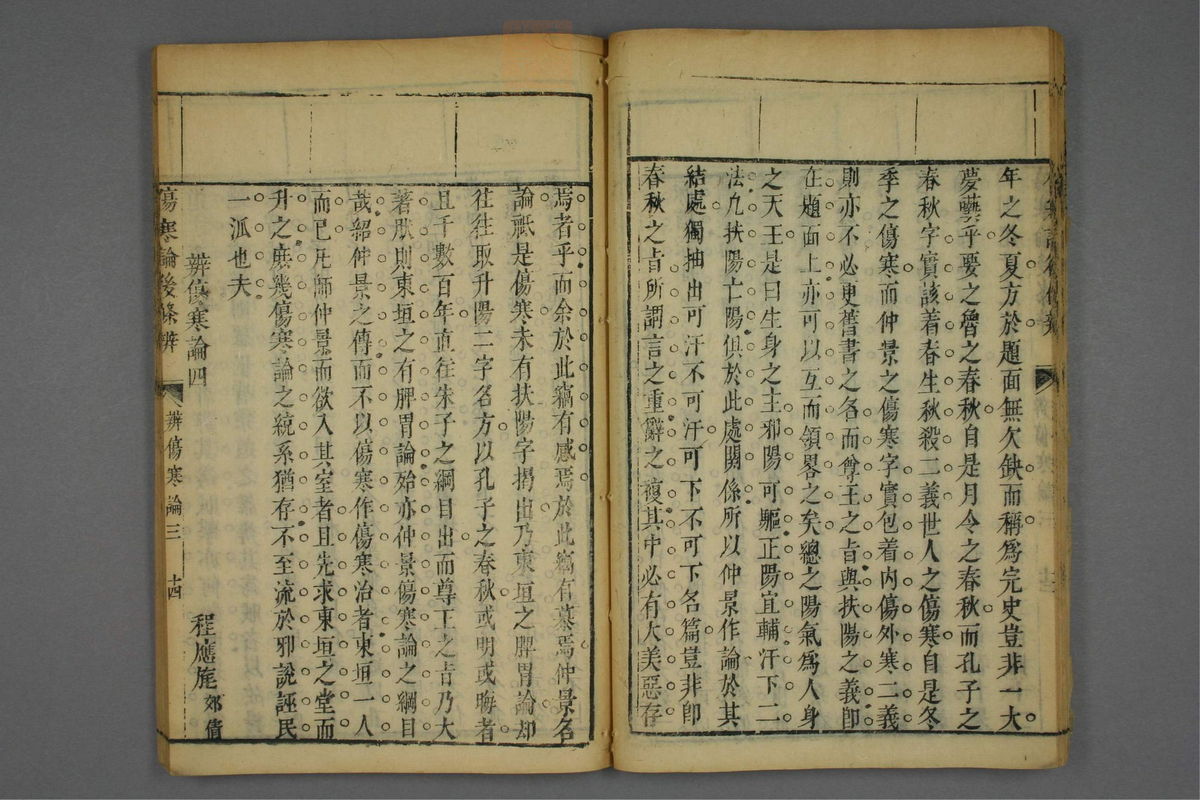 年之冬夏方於題面無欠缺而稱爲完史豈非一大
夢藝乎要之魯之春秋自是月令之春秋而孔子之
春秋字實該着春生秋殺二義世人之傷寒自是冬
季之傷寒而仲景之傷寒字實包着內傷外寒二義
則亦不必更舊書之名而尊王之旨與扶陽之義卽
在題面上亦可以互而領畧之矣總之陽氣爲人身
之天王是曰生身之主邪陽可驅正陽宜輔汗下二
法九扶陽亡陽俱於此處關係所以仲景作論於其
結處獨抽出可汗不可汗可下不可下名篇豈非卽
春秋之旨所謂言之重辭之複其中必有大美惡存
焉者乎而余於此竊有感焉於此竊有慕焉仲景名
論祇是傷寒未有扶陽字揭出乃東垣之脾胃論却
往往取升陽二字名方以孔子之春秋或明或晦者
且千數百年直往朱子之綱目出而尊王之旨乃大
著朕則東垣之有脾胃論殆亦仲景傷寒論之綱目
哉紹仲景之傳而不以傷寒作傷寒治者東垣一人
而已凡師仲景而欲入其室者且先求東垣之堂而
升之庶幾傷寒論之統系猶存不至流於邪說誣民
一派也夫
辨傷寒論四
程應旄 郊倩
傷寒論後條辨
辨傷寒論三
十四